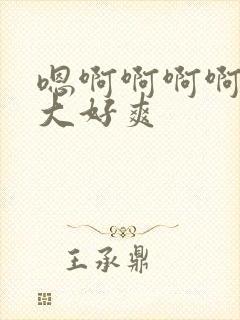 嗯啊啊啊啊
大好爽
王承鼎